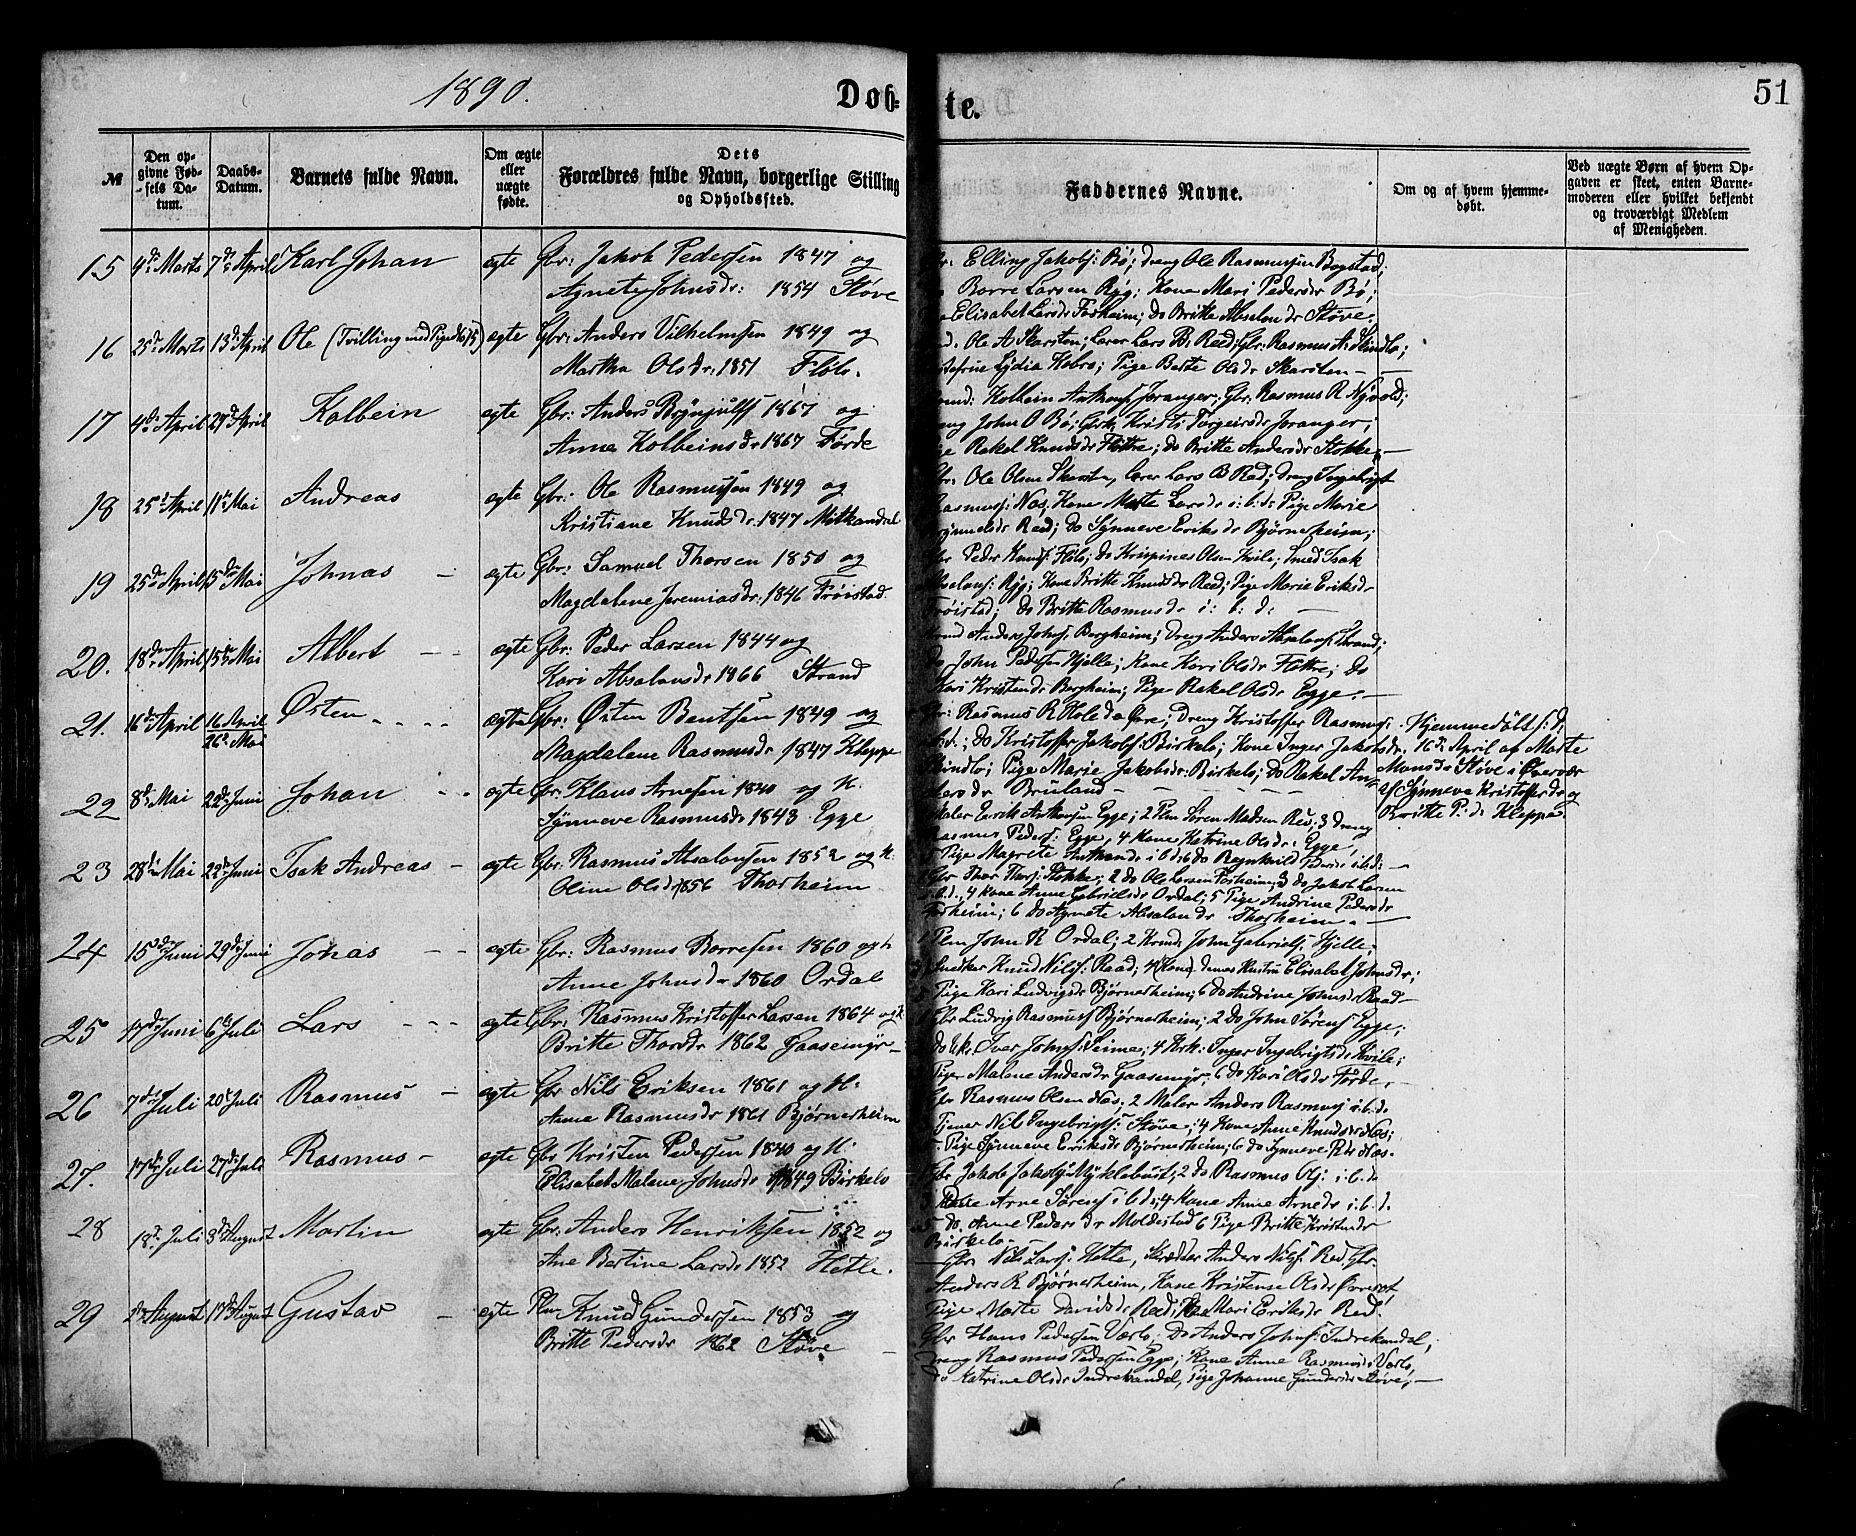 1890.
Døb-
te.
51
№
Den op-
givne Fød-
sels Da-
tum.
Daabs-
Datum.
Barnets fulde Navn.
Om ægte
eller
uægte
fødte.
Dets
Forældres fulde Navn, borgerlige Stilling
og Opholdssted.
Faddernes Navne.
Om og af hvem hjemme-
døbt.
Ved uægte Børn af hvem Op-
gaven er skeet, enten Barne-
moderen eller hvilket bekjendt
og troværdigt Medlem
af Menigheden.
15 9de Marts 7de April Karl Johan ægte Gbr: Jakob Pedersen 1847 og
Agnete Johnsdr: 1854 Støve
Elling Jakobs: Bø; dreng Ole Rasmussen Bogstad;
Borre Larsen Ryg; Kone Mari Pedersdr Bø;
Elisabet Larsdr Forheim; do Britte Absalondr Støve;
16 25de Marts 13de April Ole (Tvilling med Pige No 15) ægte Gbr: Anders Vilhelmsen 1849 og
Martha Olsdr: 1851 Flølo.
Ole A Skarsten; Lærer Lars B: Rød; Gbr: Rasmus A: Skindlo;
Lydia Kobro; Pige Berte Olsdr Skarsten —
17 4de April 27de April Kolbein ægte Gbr: Anders Brynjulfs 1867 og
Anna Kolbeinsdr 1867 Førde
Kolbein Anthons: Joranger; Gbr: Rasmus R Nyvold;
John O Bø; Kristi Torgeirsdr Joranger;
Rakel Knudsdr Flettre; do Britte Andersdr Stokke; —
18 25de April 11te Mai Andreas ægte Gbr: Ole Rasmussen 1849 og
Kristiane Knudsdr: 1847 Mitkandal
Ole Olsen Skarsten, Lærer Lars B Rød; dreng Ingebrigt
Rasmus: Nos; Kone Marte Larsdr i: b: d: Pige Marie
Rød; do Synneve Eriksdr Bjørnerheim;
19 25de April 15de Mai Johnas ægte Gbr: Samuel Thorsen 1850 og
Magdalene Jeremiasdr: 1846 Frøistad.
Gbr Peder Knuds: Flølo; do Krispines Olsen Kvile; Smed Isak
Absalons: Ryg; Kone Britte Knudsdr Rød; Pige Marie Eriksdr
Frøistad; do Britte Rasmusdr i: b: d: —
20. 18de April 15de Mai Albert ægte Gbr: Peder Larsen 1844 og
Kari Absalonsdr 1866 Strand
Anders Johns: Bergheim; Dreng Anders Absalons: Strand;
do John Pedersen Hjelle; Kone Kari Olsdr Flettre; do
Kari Kristendr Bergheim; Pige Rakel Olsdr Egge. —
21. 16de April 16 April
26de Mai
Østen ægte Gbr: Østen Bentsen 1849 og
Magdalene Rasmusdr 1847 Kleppe
Rasmus R Hole do Øvre; Dreng Kristoffer Rasmus:
do Kristoffer Jakobs: Birkelo; Kone Inger Jakobsdr
Skindlo; Pige Marie Jakobsdr: Birkelo; do Rakel An-
dersdr Bruland
Hjemmedøbt s: d:
16de April af Marte
Monsdr Støve i Overvær
af Synneve Kristoffersdr og
Britte P: dr Kleppe
22 8de Mai 22de Juni Johan ægte Gbr: Klaus Arnesen 1840 og K.
Synneve Rasmusdr 1843 Egge
Maler Enrik Anthonsen Egge; 2 Plm Søren Madsen Rød; 3 dreng
Rasmus Peders: Egge; 4 Kone Katrine Olsdr: Egge;
5 Pige Magrete Anthonsdr i b d; 6 do Regnhild Pedersdr i:b:d: —
23 28de Mai 22de Juni Isak Andreas ægte Gbr: Rasmus Absalonsen 1852 og K.
Oline Olsdr 1856 Thorheim
Gbr Thor Thors: Stokke; 2 do Ole Larsen Forheim; 3 do Jakob Larsen
i.b.d.; 4 Kone Anne Gabrielsdr Ordal; 5 Pige Andrine Pedersdr
Forheim; 6 do Agnete Absalondr Thorheim. —
24 15de Juni 29de Juni Johas ægte Gbr: Rasmus Borresen 1860 og K
Anne Johnsdr 1860 Ordal
1 Plm John R Ordal; 2 John Gabriels: Hjelle;
Snedker Knud Nils: Raad; 4 (Kone) dennes Hustru Elisabet Johnsdr;
5 Pige Kari Ludvigsdr Bjørnerheim; 6 do Andrine Johnsdr Raad —
25 17de Juni 6te Juli Lars ægte Gbr: Rasmus Kristoffer Larsen 1864 og K
Britte Thorsdr 1862 Gaasemyr —
Gbr Ludvig Rasmus: Bjørnerheim; 2 do John Sørens: Egge;
do Iver Johns: Seime; 4 Inger Ingebrigtsdr Kvile;
Pige Malene Andersdr Gaasemyr; 6 do Kari Olsdr Førde. —
26 7de Juli 20de Juli Rasmus ægte Gbr Nils Eriksen 1861 og K:
Anne Rasmusdr 1861 Bjørnerheim
Gbr Rasmus Olsen Nos; 2 Maler Anders Rasmus: i.b.d.
Tjener Nils Ingebrigts: Støve; 4 Kone Anne Knudsdr Nos;
5 Pige Synneve Eriksdr Bjørnerheim; 6 do Synneve R:dr Nos.
27. 17de Juli 27de Juli Rasmus ægte Gbr Kristen Pedersen 1840 og K:
Elisabet Malene Johnsdr 1849 Birkelo
Gbr Jakob Jakobs: Myklebust; 2 do Rasmus Ols: i.b.d
Arne Sørens: i b d; 4 Kone Anne Arnedr i.b.d.
5 do. Anne Pedersdr Moldestad 6 Pige Britte Kristendr
Birkelo.
28 18de Juli 3de August Martin ægte Gbr: Anders Henriksen 1852 og
Ane Bertine Larsdr 1852 Hetle.
Gbr. Nils Lars: Hetle, Skrædder Anders Nils: Rød, Gbr.
Anders R Bjørnerheim, Kone Kristense Olsdr Øvreset
Pige Marte Davidsdr Rød; Mari Eriksdr Rød.
29 2den August 17de August Gustav ægte Plm: Knud Gundersen 1853 og
Britte Pedersdr 1862 Støve —
Gbr Hans Pedersen Vårlo; Do Anders Johns: Indrekandal;
Dreng Rasmus Pedersen Egge; Kone Anne Rasmusdr Vårlo;
do Katrine Olsdr Indrekandal, Pige Johanne Gundersdr Støve; —